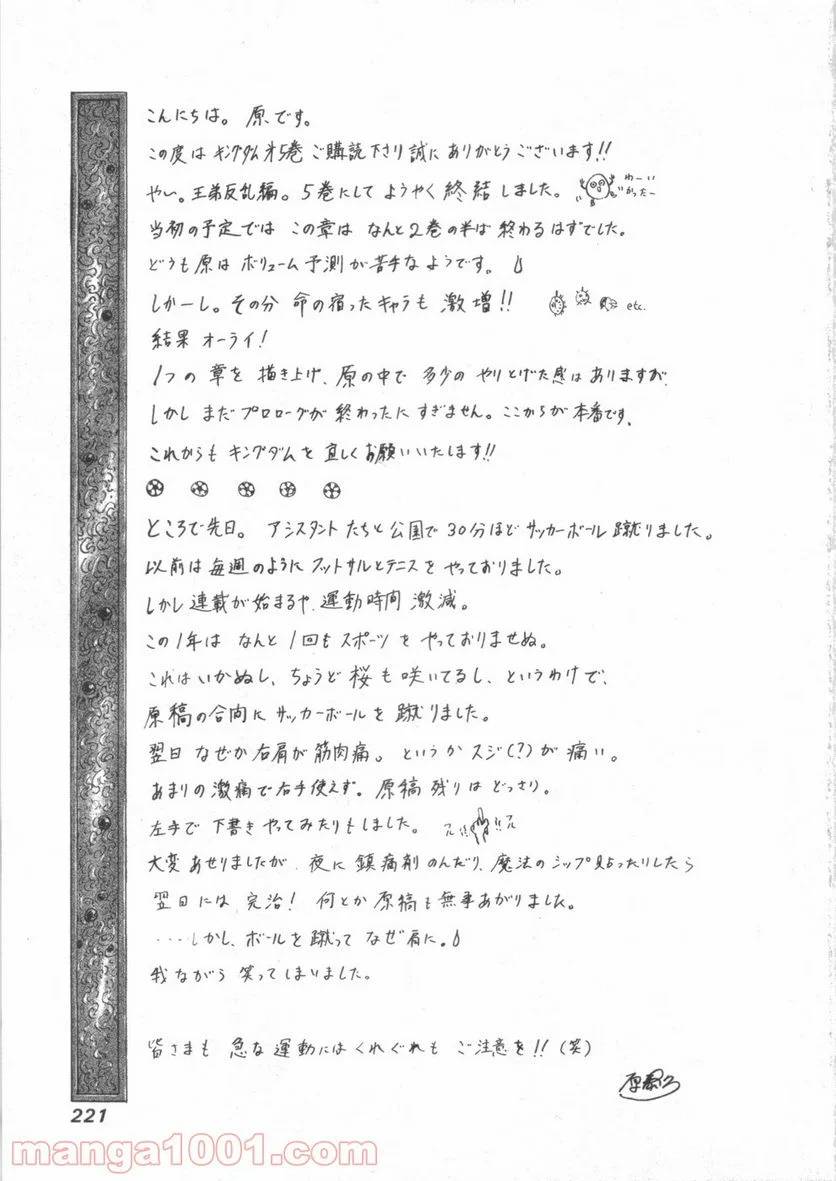 こんにちは。原です。
この度は キングダム第5巻 ご購読下さり誠にありがとうございます!!
やい。王弟反乱編。5巻にして ようやく 終結しました。
わーい
当初の予定では この章は なんと2巻の半ば終わるはずでした。
どうも原は ボリューム予測が苦手なようです。
しかーし。その分 命の宿ったキャラも 激増!! etc.
結果オーライ!
1つの章を 描き上げ、原の中で 多少の やりとげた感はありますが、
しかし まだ プロローグが 終わったに すぎません。ここからが 本番です。
これからも キングダムを 宜しくお願いいたします!!
ところで先日。アシスタントたちと公園で 30分ほど サッカーボール 蹴りました。
以前は毎週のように フットサルとテニスを やっておりました。
しかし連載が始まるや、運動時間 激減。
この1年は なんと 1回も スポーツを やっておりませぬ。
これはいかぬし、ちょうど桜も咲いてるし、というわけで、
原稿の合間に サッカーボールを 蹴りました。
翌日 なぜか右肩が筋肉痛。というか スジ(?)が 痛い。
あまりの激痛で右手使えず。原稿残りは どっさり。
左手で 下書き やってみたりもしました。
大変あせりましたが、夜に 鎮痛剤のんだり、魔法のシップ貼ったりしたら
翌日には 完治! 何とか 原稿も 無事あがりました。
・・・しかし、ボールを蹴って なぜ肩に。
我ながら 笑ってしまいました。
皆さまも 急な運動にはくれぐれも ご注意を!! (笑)
原泰久
221
manga1001.com